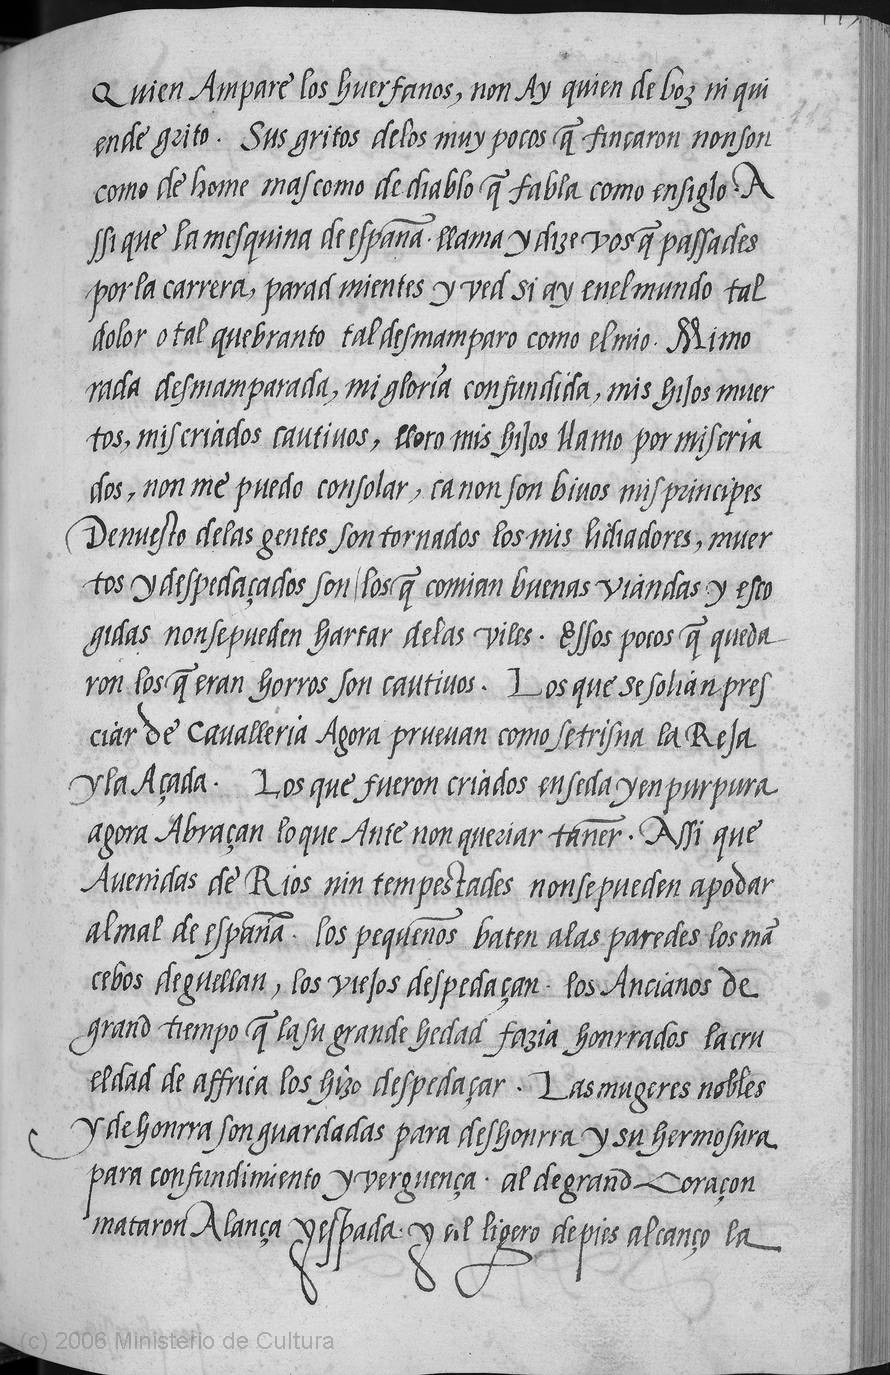 Quien Ampare los huerfanos, non Ay quien de boz ni qui
ende grito. Sus gritos delos muy pocos q̃ fincaron non son
como de home mas como de diablo q̃ fabla como en siglo. A
ssi que la mesquina de españa. llama y dize vos q̃ passades
por la carrera, parad mientes y ved si ay en el mundo tal
dolor o tal quebranto tal desmamparo como el mio. Mi mo
rada desmamparada, mi gloria confundida, mis hijos muer
tos, mis criados cautivos, lloro mis hijos llamo por mis cria
dos, non me puedo consolar, ca non son bivos mis principes
Denuesto delas gentes son tornados los mis lidiadores, muer
tos y despedaçados son los q̃ comian buenas viandas y esco
gidas non se pueden hartar delas viles. Essos pocos q̃ queda
ron los q̃ eran horros son cautivos. Los que se solian pres
ciar de Cavalleria Agora pruevan como se trisna la Reja
y la Açada. Los que fueron criados en seda y en purpura
agora Abraçan lo que Ante non querian tañer. Assi que
Avenidas de Rios nin tempestades non se pueden apodar
al mal de españa. los pequeños baten a las paredes los mã
cebos deguellan, los viejos despedaçan. los Ancianos de
grand tiempo q̃ la su grande hedad fazia honrrados la cru
eldad de affrica los hizo despedaçar. Las mugeres nobles
y de honrra son guardadas para deshonrra y su hermosura
para confundimiento y verguença. al de grand Coraçon
mataron A lança y espada. y al ligero de pies alcanço la
(c) 2006 Ministerio de Cultura